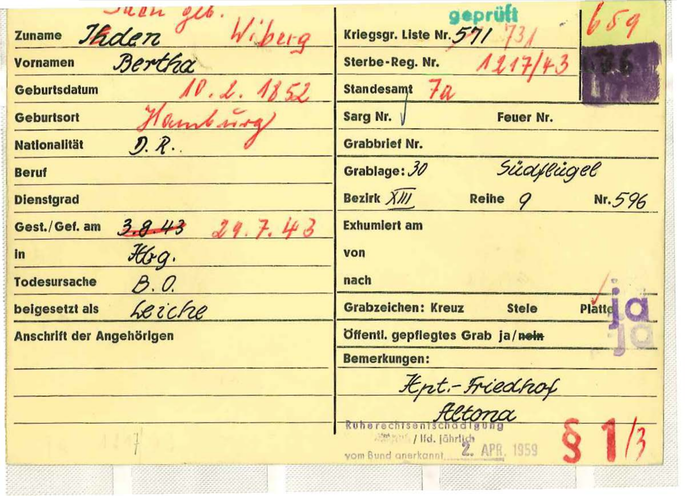 geb.
Zuname Ihden Wiberg
Vornamen Bertha
Geburtsdatum 10. 2. 1852
Geburtsort Hamburg
Nationalität D. R.
Beruf
Dienstgrad
Gest./Gef. am 3.8.43 29.7.43
in Hbg.
Todesursache B. O.
beigesetzt als Leiche
Anschrift der Angehörigen
geprüft
659
Kriegsgr. Liste Nr. 571 731
Sterbe-Reg. Nr. 1217/43
Standesamt 7a
Sarg Nr. Feuer Nr.
Grabbrief Nr.
Grablage: 30 Südflügel
Bezirk XIII Reihe 9 Nr. 596
Exhumiert am
von
nach
Grabzeichen: Kreuz Stele Platte
ja
ja
Öffentl. gepflegtes Grab ja/nein
Bemerkungen:
Hpt.-Friedhof
Altona
Ruherechtsentschädigung
/ lfd. jährlich
vom Bund anerkannt 2. APR. 1959
§ 1/3